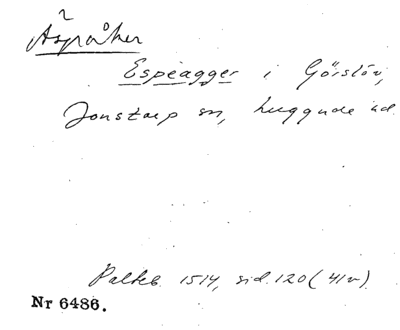 ?
Äspåker
Espeagger i Görslöv,
Jonstorp sn, Luggude hd.
Palteb. 1514, sid. 120 (41v).
Nr 6486.